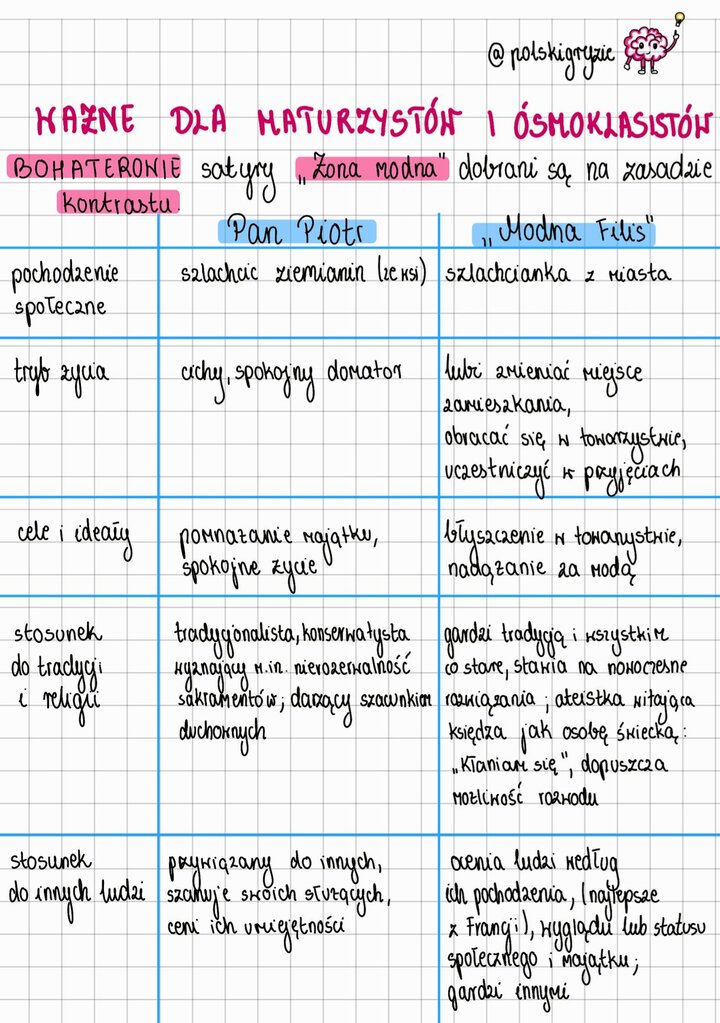 @polskigryzie
WAŻNE DLA MATURZYSTÓW I ÓSMOKLASISTÓW
BOHATEROWIE satyry „Żona modna" dobrani są na zasadzie
kontrastu.
Pan Piotr
„Modna Filis"
pochodzenie
społeczne
szlachcic ziemianin (ze wsi)
szlachcianka z miasta
tryb życia
cichy, spokojny domator
lubi zmieniać miejsce
zamieszkania,
obracać się w towarzystwie,
uczestniczyć w przyjęciach
cele i ideały
pomnażanie majątku,
spokojne życie
błyszczenie w towarzystwie,
nadążanie za modą
stosunek
do tradycji
i religii
tradycjonalista, konserwatysta
wyznający m.in. nierozerwalność
sakramentów; darzący szacunkiem
duchownych
gardzi tradycją i wszystkim
co stare, stawia na nowoczesne
rozwiązania; ateistka witająca
księdza jak osobę świecką:
„Kłaniam się", dopuszcza
możliwość rozwodu
stosunek
do innych ludzi
przywiązany do innych,
szanuje swoich służących,
ceni ich umiejętności
ocenia ludzi według
ich pochodzenia, (najlepsze
z Francji), wyglądu lub statusu
społecznego i majątku;
gardzi innymi